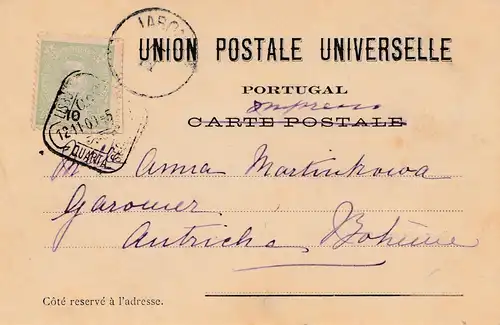 JAROM
UNION POSTALE UNIVERSELLE
PORTUGAL
Impresso
CARTE POSTALE
10
12.11.0
QUARTA
Anna Martinkowa
Garomer
Autriche Bohème
Côté reservé à l'adresse.